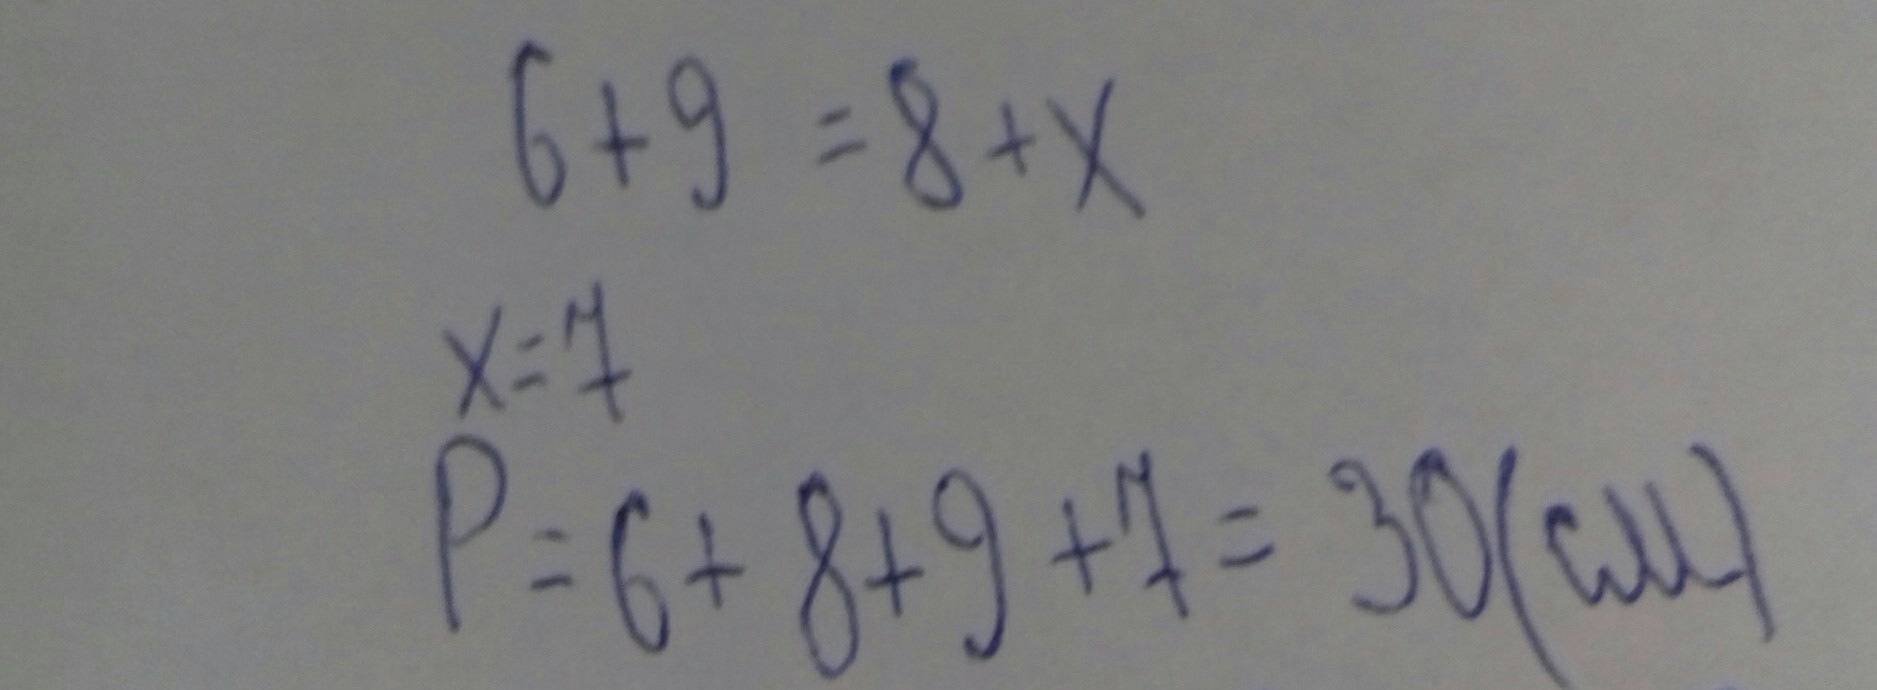 6+9 = 8+x
x=7
P = 6+8+9+7 = 30(см)